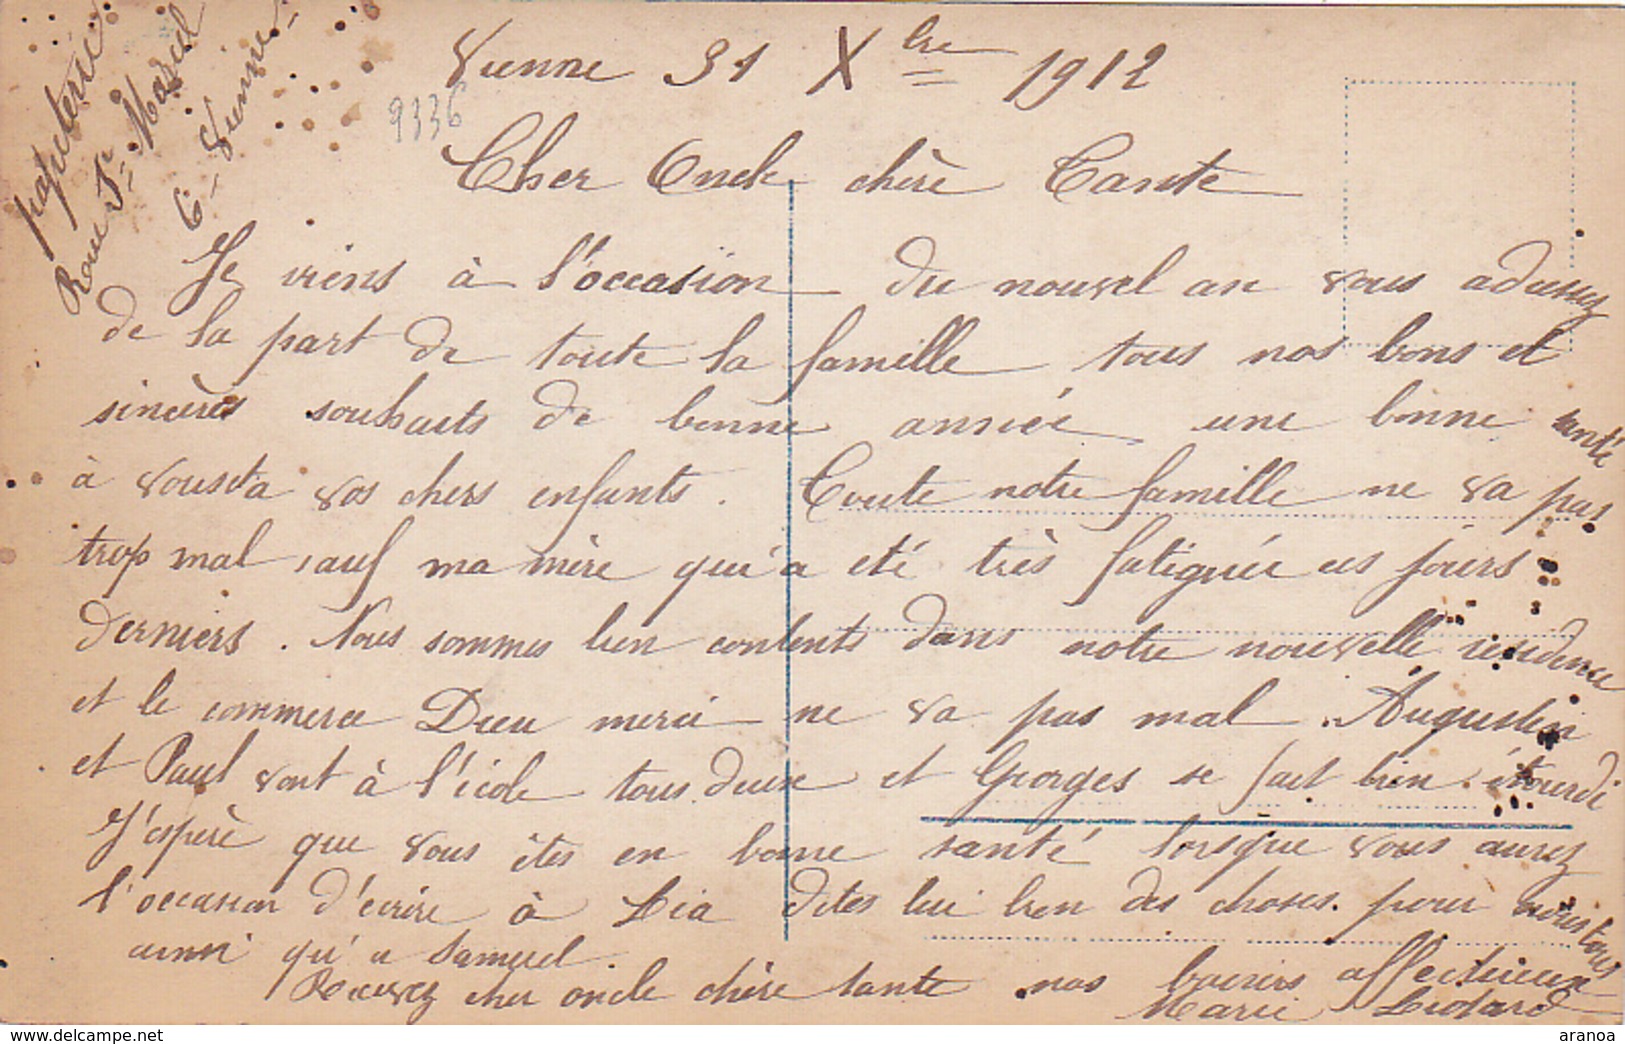 papeterie
Rome St Marcel
6 - Vienne -
Vienne 31 Xbre 1912
9336
Cher Oncle chère Tante
Je viens à l'occasion du nouvel an vous adressez
de la part de toute la famille tous nos bons et
sincères souhaits de bonne année une bonne santé
à vous et a vos chers enfants. Toute notre famille ne va pas
trop mal sauf ma mère qui a eté très fatiguée ces jours
derniers. Nous sommes bien contents dans notre nouvelle résidence
et le commerce Dieu merci ne va pas mal. Augustin
et Paul vont à l'école tous deux et Georges se fait bien étourdi
J'espère que vous êtes en bonne santé lorsque vous aurez
l'occasion d'écrire à Lia dites lui bien des choses pour nous tous
ainsi qu'a Samuel.
Recevez cher oncle chère tante nos baisers affectueux
Marie Liotard
aranoa